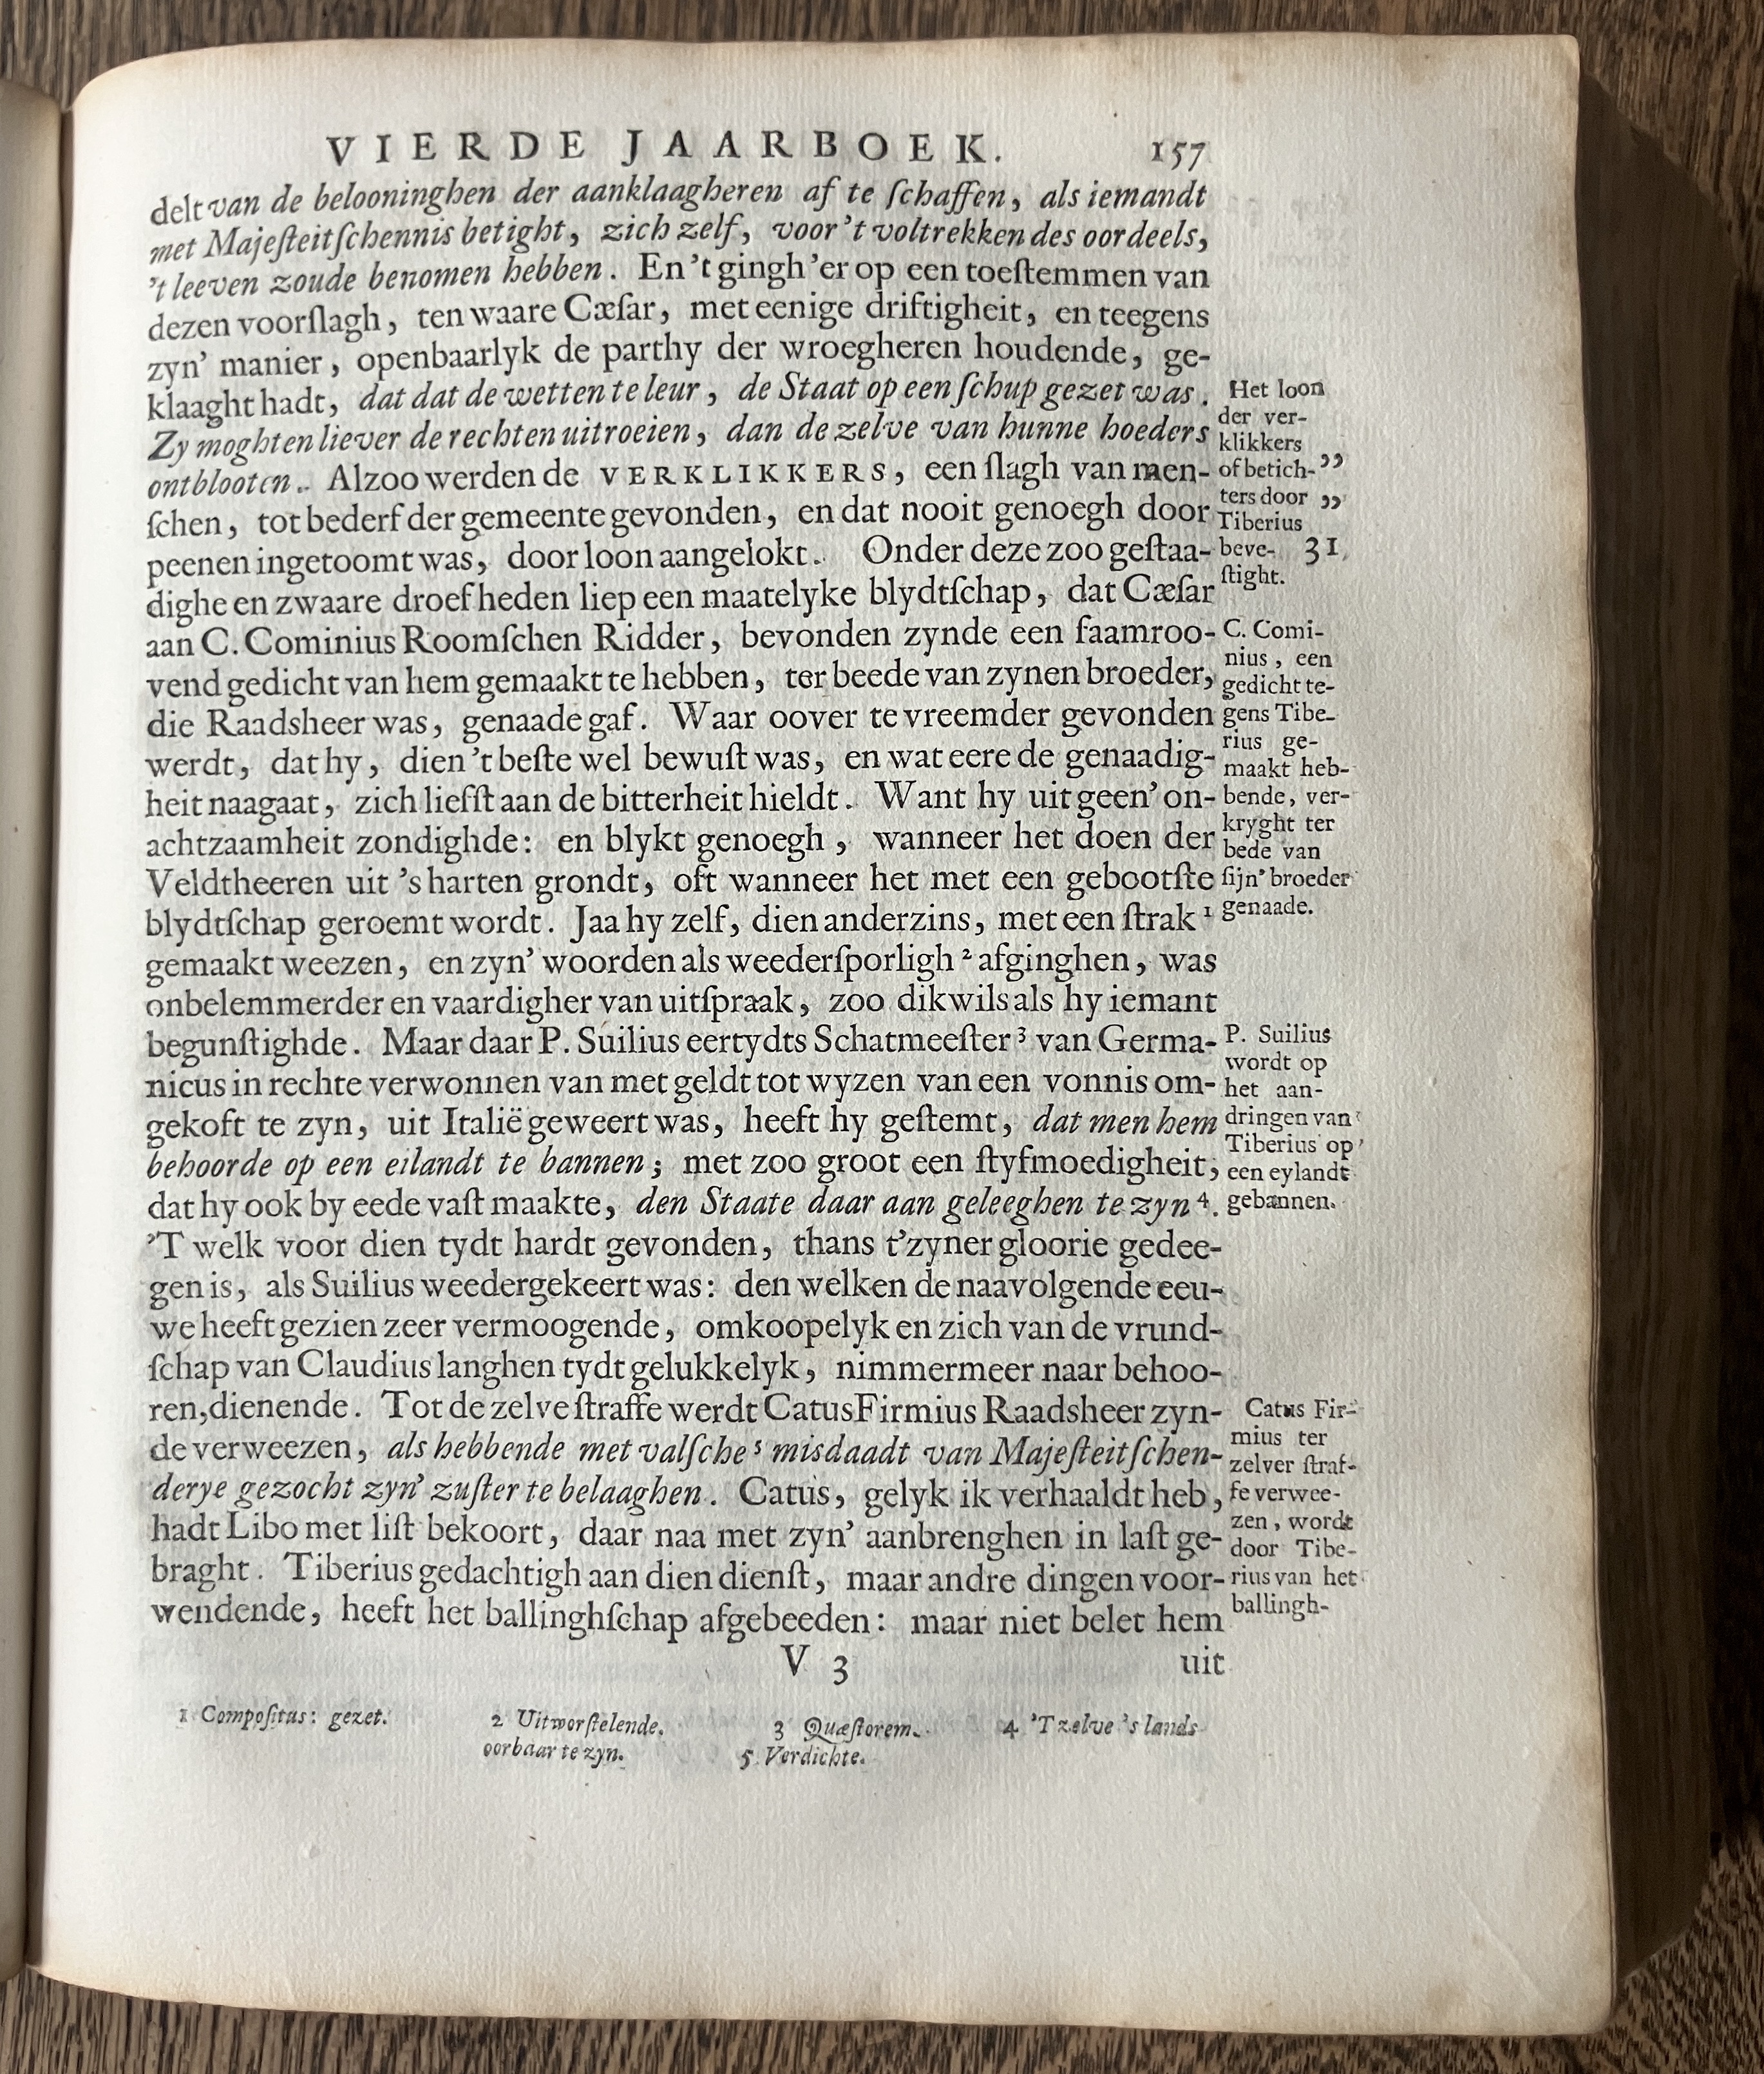 VIERDE JAARBOEK. 157
delt van de belooninghen der aanklaagheren af te ſchaffen, als iemandt
met Majeſteitſchennis betight, zich zelf, voor 't voltrekken des oordeels,
't leeven zoude benomen hebben. En 't gingh 'er op een toeſtemmen van
dezen voorſlagh, ten waare Cæſar, met eenige driftigheit, en teegens
zyn' manier, openbaarlyk de parthy der wroegheren houdende, ge-
klaaght hadt, dat dat de wetten te leur, de Staat op een ſchup gezet was.
Zy moghten liever de rechten uitroeien, dan de zelve van hunne hoeders
ontblooten. Alzoo werden de VERKLIKKERS, een ſlagh van men-
ſchen, tot bederf der gemeente gevonden, en dat nooit genoegh door
peenen ingetoomt was, door loon aangelokt. Onder deze zoo geſtaa-
dighe en zwaare droefheden liep een maatelyke blydtſchap, dat Cæſar
aan C. Cominius Roomſchen Ridder, bevonden zynde een faamroo-
vend gedicht van hem gemaakt te hebben, ter beede van zynen broeder,
die Raadsheer was, genaade gaf. Waar oover te vreemder gevonden
werdt, dat hy, dien 't beſte wel bewuſt was, en wat eere de genaadig-
heit naagaat, zich liefſt aan de bitterheit hieldt. Want hy uit geen' on-
achtzaamheit zondighde: en blykt genoegh, wanneer het doen der
Veldtheeren uit 's harten grondt, oft wanneer het met een gebootſte
blydtſchap geroemt wordt. Jaa hy zelf, dien anderzins, met een ſtrak 1
gemaakt weezen, en zyn' woorden als weederſporligh 2 afginghen, was
onbelemmerder en vaardigher van uitſpraak, zoo dikwils als hy iemant
begunſtighde. Maar daar P. Suilius eertydts Schatmeeſter 3 van Germa-
nicus in rechte verwonnen van met geldt tot wyzen van een vonnis om-
gekoft te zyn, uit Italië geweert was, heeft hy geſtemt, dat men hem
behoorde op een eilandt te bannen; met zoo groot een ſtyfmoedigheit,
dat hy ook by eede vaſt maakte, den Staate daar aan geleeghen te zyn 4.
'T welk voor dien tydt hardt gevonden, thans t'zyner gloorie gedee-
gen is, als Suilius weedergekeert was: den welken de naavolgende eeu-
we heeft gezien zeer vermoogende, omkoopelyk en zich van de vrund-
ſchap van Claudius langhen tydt gelukkelyk, nimmermeer naar behoo-
ren, dienende. Tot de zelve ſtraffe werdt Catus Firmius Raadsheer zyn-
de verweezen, als hebbende met valſche 5 misdaadt van Majeſteitſchen-
derye gezocht zyn' zuſter te belaaghen. Catus, gelyk ik verhaaldt heb,
hadt Libo met liſt bekoort, daar naa met zyn' aanbrenghen in laſt ge-
braght. Tiberius gedachtigh aan dien dienſt, maar andre dingen voor-
wendende, heeft het ballinghſchap afgebeeden: maar niet belet hem
V 3 uit
Het loon
der ver-
klikkers
of betich- ”
ters door ”
Tiberius
beve- 31.
ſtight.
C. Comi-
nius, een
gedicht te-
gens Tibe-
rius ge-
maakt heb-
bende, ver-
kryght ter
bede van
ſijn' broeder
genaade.
P. Suilius
wordt op
het aan-
dringen van
Tiberius op
een eylandt
gebannen.
Catus Fir-
mius ter
zelver ſtraf-
fe verwee-
zen, wordt
door Tibe-
rius van het
ballingh-
1 Compoſitus: gezet. 2 Uitworſtelende. 3 Quæſtorem. 4 'T zelve 's lands
oorbaar te zyn. 5 Verdichte.